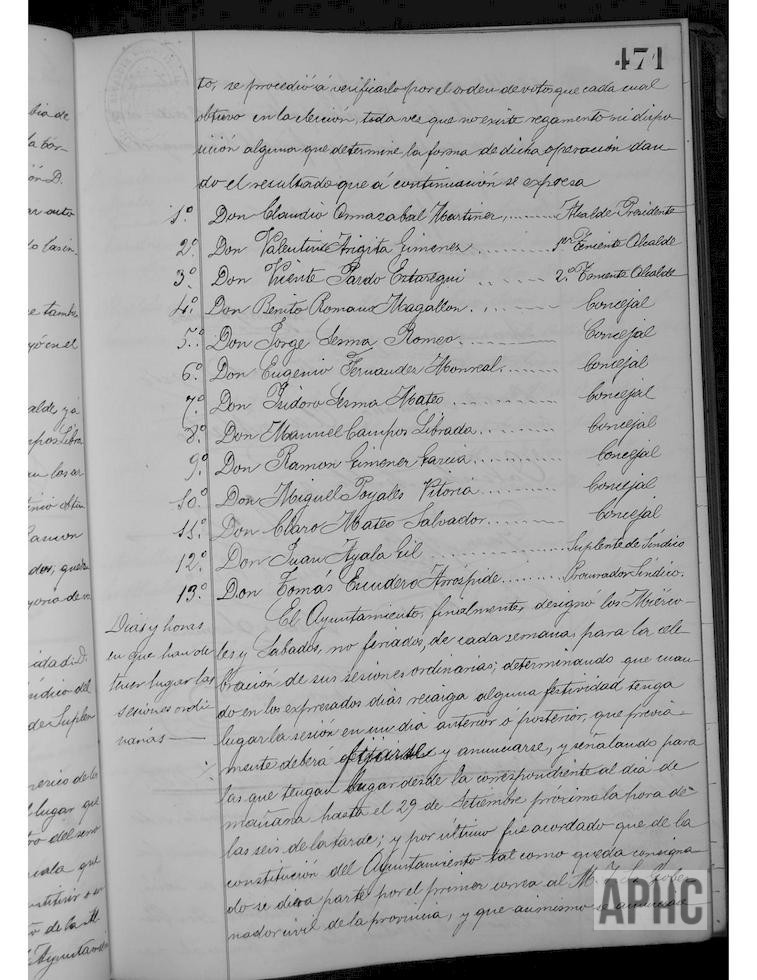 471
to, se procedió á verificarlo por el orden de votos que cada cual
obtuvo en la elección, toda vez que no existe regamento ni dispo-
sición alguna que determine la forma de dicha operación dan-
do el resultado que á continuación se expresa
1º Don Claudio Onnazabal Martinez, ....... Alcalde Presidente
2º Don Valentin Arigita Gimenez ....... 1er Teniente Alcalde
3º Don Vicente Pardo Eztaregui ....... 2º Teniente Alcalde
4º Don Benito Romano Magallon ....... Concejal
5º Don Jorge Sesma Romeo ....... Concejal
6º Don Eugenio Fernandez Monreal ....... Concejal
7º Don Isidoro Sesma Mateo ....... Concejal
8º Don Manuel Campos Librada ....... Concejal
9º Don Ramon Gimenez Garcia ....... Concejal
10º Don Miguel Poyales Vitoria ....... Concejal
11º Don Claro Mateo Salvador ....... Concejal
12º Don Juan Ayala Gil ....... Suplente de Síndico
13º Don Tomás Escudero Arróspide ....... Procurador Síndico.
Dias y horas
en que han de
tener lugar las
sesiones ordi-
narias
El Ayuntamiento, finalmente, designó los Miérco-
les y Sabados, no feriados, de cada semana, para la cele-
bracion de sus sesiones ordinarias; determinando que cuan-
do en los expresados dias recaiga alguna festividad tenga
lugar la sesión en un dia anterior o posterior, que previa-
mente deberá fijarse y anunciarse, y señalando para
las que tengan lugar desde la correspondiente al dia de
mañana hasta el 29 de Setiembre próximo la hora de
las seis de la tarde; y por último fue acordado que de la
constitución del Ayuntamiento tal como queda consigna-
do se diera parte por el primer correo al M. I. Sr. Gober-
nador civil de la provincia, y que asimismo se
APHC